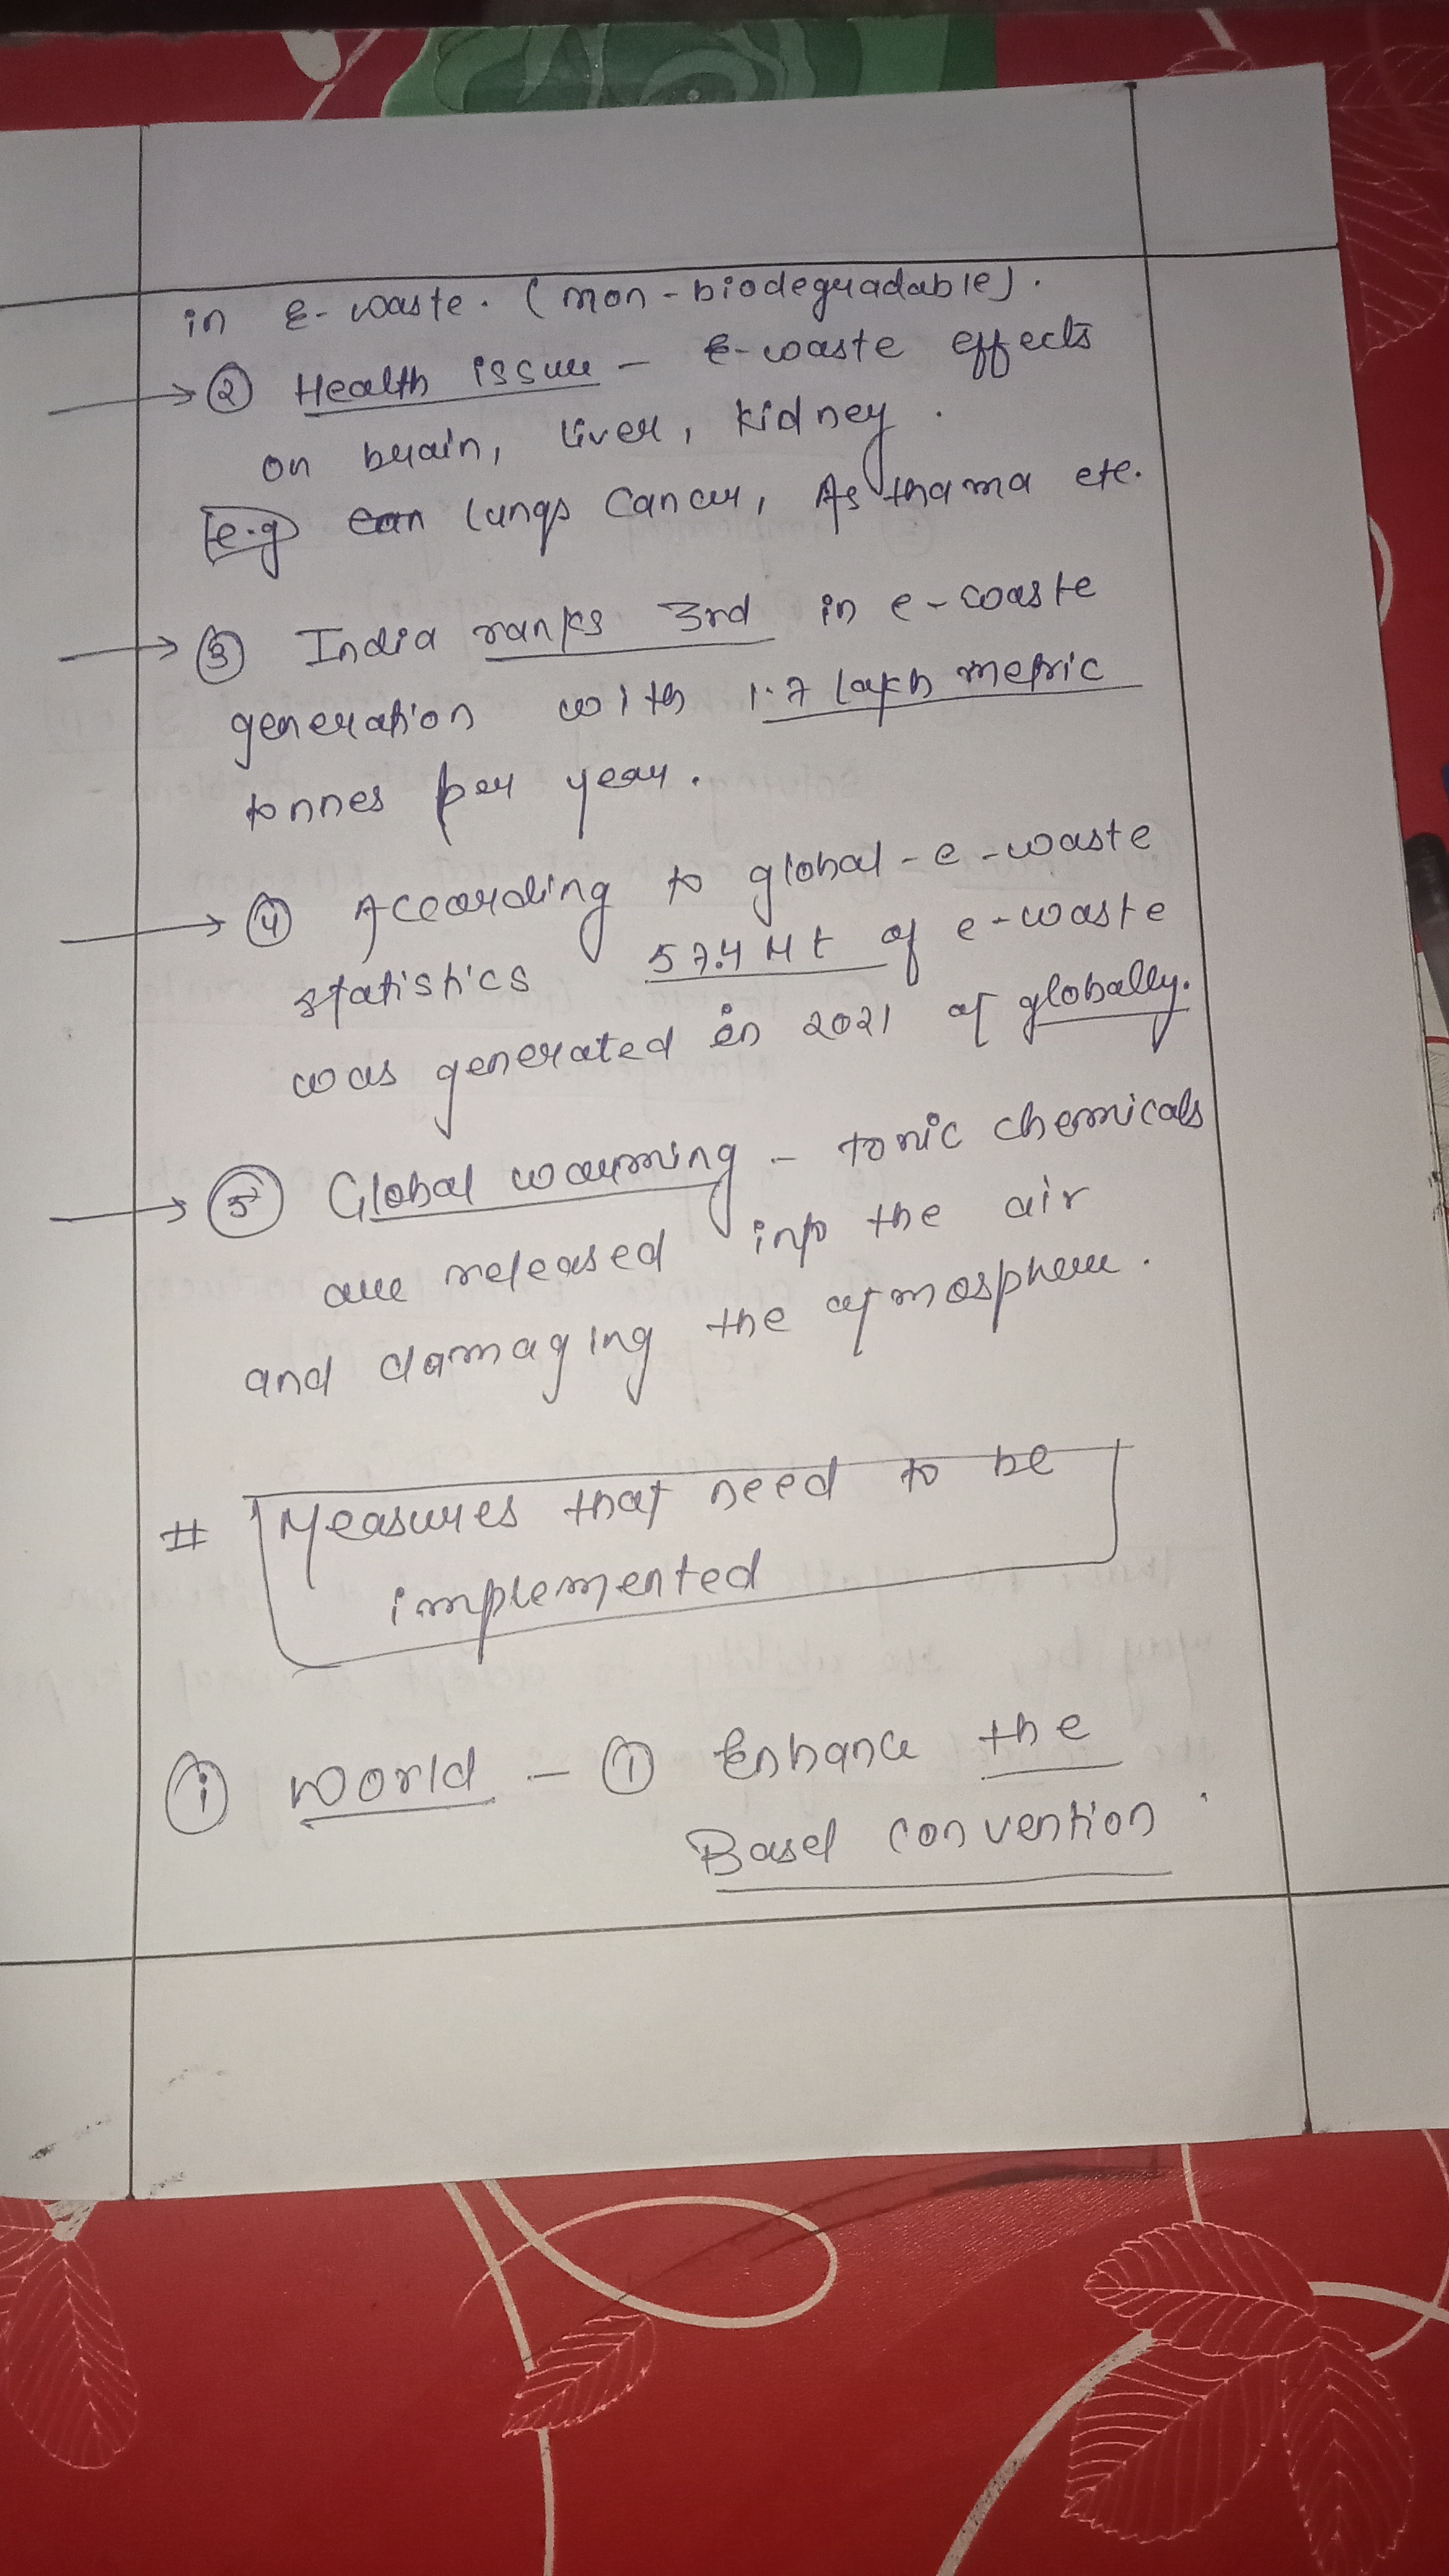 in E-waste. (non-biodegradable).
→ ② Health issue - E-waste effects
on brain, liver, kidney.
e.g lungs cancer, Asthama etc.
→ ③ India ranks 3rd in e-waste
generation with 1.7 lakh metric
tonnes per year.
→ ④ According to global-e-waste
statistics 57.4 Mt of e-waste
was generated in 2021 at globally.
→ ⑤ Global warming - toxic chemicals
are released into the air
and damaging the atmosphere.
# Measures that need to be
implemented
ⓘ World - ① Enhance the
Basel convention.